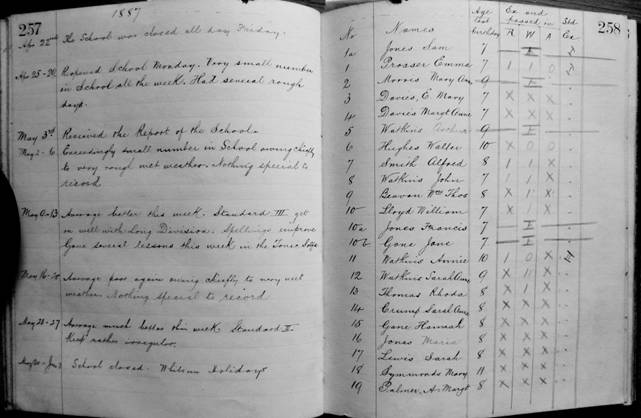 257
1887
Apr 22nd The School was closed all day Friday.
Apr 25-29 Reopened School Monday. Very small number
in School all the week. Had several rough
days.
May 3rd Received the Report of the School.
May 2-6 Exceedingly small number in School owing chiefly
to very rough wet weather. Nothing special to
record
May 9-13 Average better this week. Standard III get
on well with Long Division. Spellings improve
Gave several lessons this week in the Tonic Solfa
May 16-20 Average poor again owing chiefly to very wet
weather. Nothing special to record
May 23-27 Average much better this week. Standard II
Keep rather irregular.
School closed. Whitsun Holidays
258
No Names Age last birthday Ex and passed in R W A Std Ex
1a Jones Sam 7 I
1 Prosser Emma 7 1 1 0
2 Mary Ann 9 I
3 Davies, E. Mary 7 X X X
4 Davies Margt Anne 7 X X X
5 Watkins 9 I
6 Hughes Walter 10 X 0 0
7 Smith Alfred 8 1 1 X
8 Watkins John 7 1 1 X
9 Beavan Wm Thos 8 X 1 X
10 Lloyd William 7 X 1 X
10a Jones Francis 7 I
10b Gane Jane 7 I
11 Watkins Annie 10 1 0 X
12 Watkins Sarah Ann 9 X X
13 Thomas Rhoda 8 X 1 X
14 Crump Sarah Ann 8 X X X
15 Gane Hannah 8 X X X
16 Jones Maria 8 X X X
17 Lewis Sarah 8 X X X
18 Symmonds Mary 11 X X X
19 Palmer, A. Margt 8 X X X